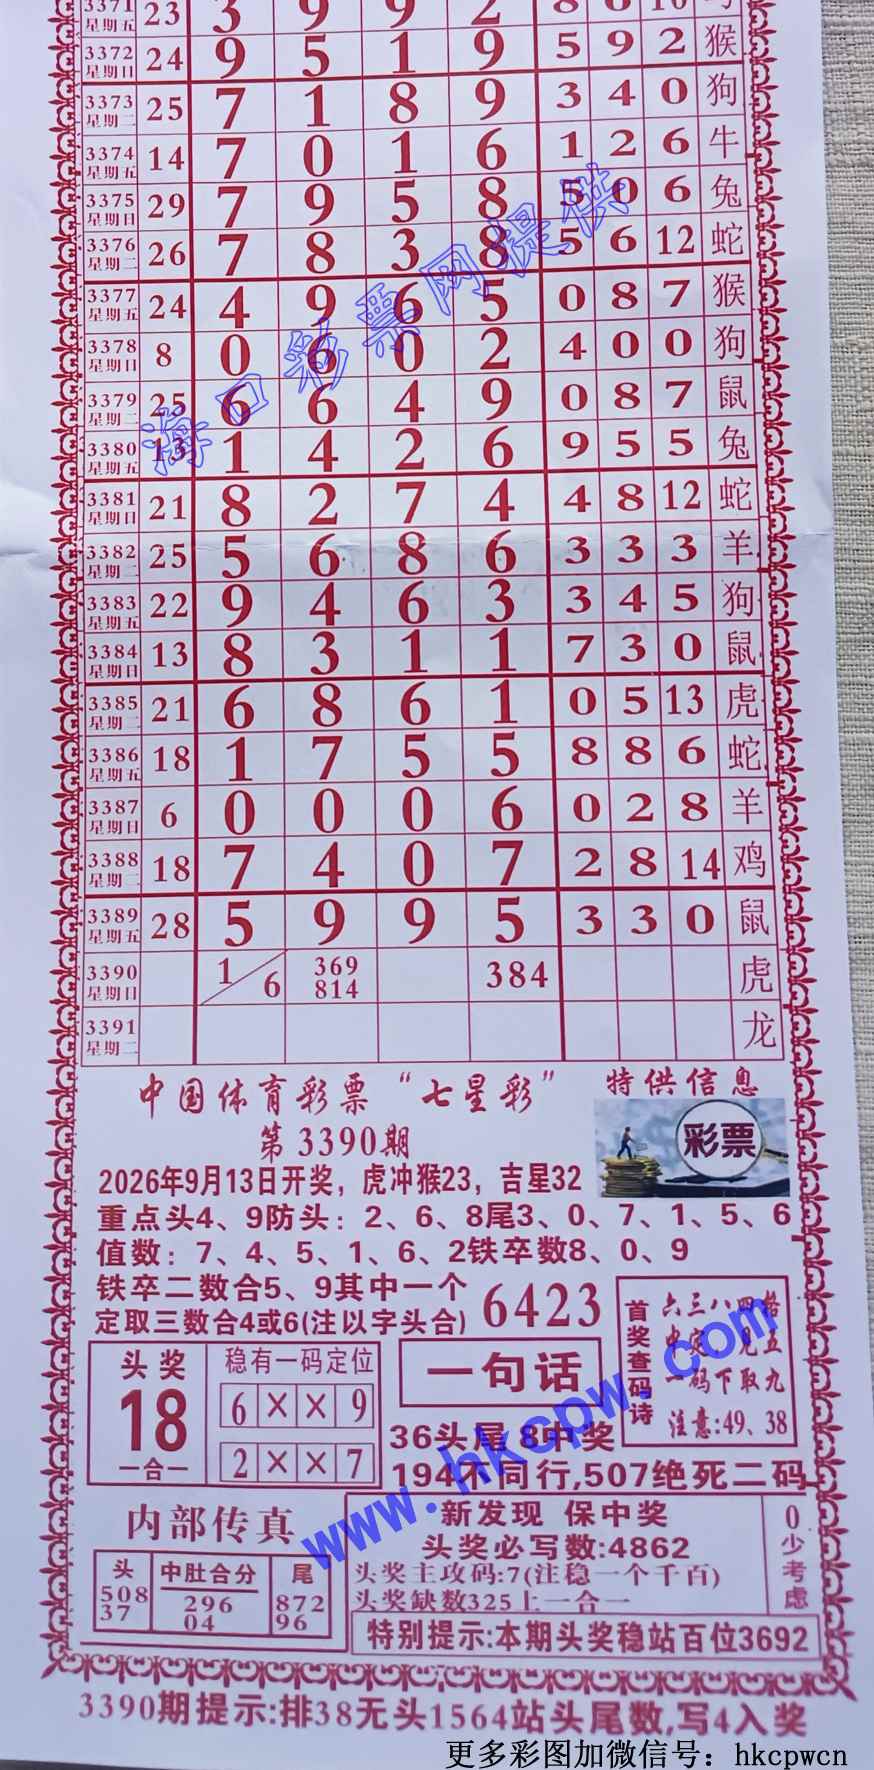 3371 星期五 23 3 9 9 2 8 6 10
3372 星期日 24 9 5 1 9 5 9 2 猴
3373 星期二 25 7 1 8 9 3 4 0 狗
3374 星期五 14 7 0 1 6 1 2 6 牛
3375 星期日 29 7 9 5 8 5 0 6 兔
3376 星期二 26 7 8 3 8 5 6 12 蛇
3377 星期五 24 4 9 6 5 0 8 7 猴
3378 星期日 8 0 6 0 2 4 0 0 狗
3379 星期二 25 6 6 4 9 0 8 7 鼠
3380 星期五 13 1 4 2 6 9 5 5 兔
3381 星期日 21 8 2 7 4 4 8 12 蛇
3382 星期二 25 5 6 8 6 3 3 3 羊
3383 星期五 22 9 4 6 3 3 4 5 狗
3384 星期日 13 8 3 1 1 7 3 0 鼠
3385 星期二 21 6 8 6 1 0 5 13 虎
3386 星期五 18 1 7 5 5 8 8 6 蛇
3387 星期日 6 0 0 0 6 0 2 8 羊
3388 星期二 18 7 4 0 7 2 8 14 鸡
3389 星期五 28 5 9 9 5 3 3 0 鼠
3390 星期日 1/6 369 814 384 虎
3391 星期二 龙
海口彩票网提供
中国体育彩票“七星彩” 特供信息
第3390期
彩票
2026年9月13日开奖，虎冲猴23，吉星32
重点头4、9防头：2、6、8尾3、0、7、1、5、6
值数：7、4、5、1、6、2铁卒数8、0、9
铁卒二数合5、9其中一个
定取三数合4或6(注以字头合)
6423
首奖查码诗
六三八四拾
中定一见五
一码下取九
注意:49、38
头奖
18
一合一
稳有一码定位
6 × × 9
2 × × 7
一句话
36头尾8中奖
194不同行,507绝死二码
www.hkcpw.com
内部传真
头
508
37
中肚合分
296
04
尾
872
96
新发现 保中奖
头奖必写数:4862
头奖主攻码:7(注稳一个千百)
头奖缺数325上一合一
0少考虑
特别提示:本期头奖稳站百位3692
3390期提示:排38无头1564站头尾数,写4入奖
更多彩图加微信号：hkcpwcn